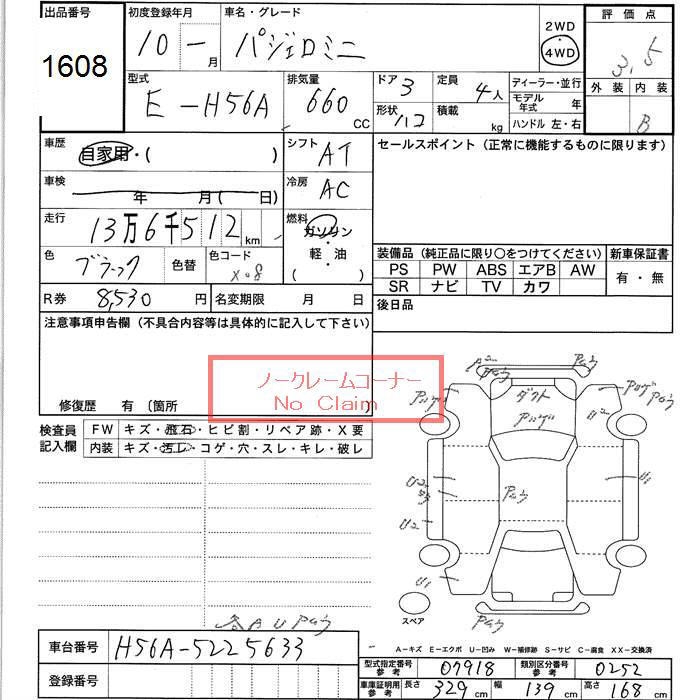 出品番号
1608
初度登録年月
10 — 月
車名・グレード
パジェロミニ
2WD
4WD
評価点
3.5
外装 内装
B
型式
E-H56A
排気量
660 CC
ドア 3
定員 4人
形状 ハコ
積載 kg
ディーラー・並行
モデル年式 年
ハンドル 左・右
車歴
自家用・( )
シフト AT
車検
年 月( 日)
冷房 AC
走行
13万6千512km
燃料
ガソリン
・
軽油
( )
色
ブラック
色替
色コード
X08
R券 8,530 円
名変期限 月 日
セールスポイント (正常に機能するものに限ります)
装備品 (純正品に限り○をつけてください)
新車保証書
PS PW ABS エアB AW
SR ナビ TV カワ
有・無
後日品
注意事項申告欄 (不具合内容等は具体的に記入して下さい)
ノークレームコーナー
No Claim
修復歴 有 〔箇所
検査員
記入欄
FW キズ・飛石・ヒビ割・リペア跡・X要
内装 キズ・汚レ・コゲ・穴・スレ・キレ・破レ
ダクト
U2
U2
U2
U1
U1
スペア
A-キズ E-エクボ U-凹み W-補修跡 S-サビ C-腐食 XX-交換済
車台番号 H56A-5225633
登録番号
型式指定番号 参考 07918
類別区分番号 参考 0252
車庫証明用 参考 長さ 329 cm 幅 139 cm 高さ 168 cm